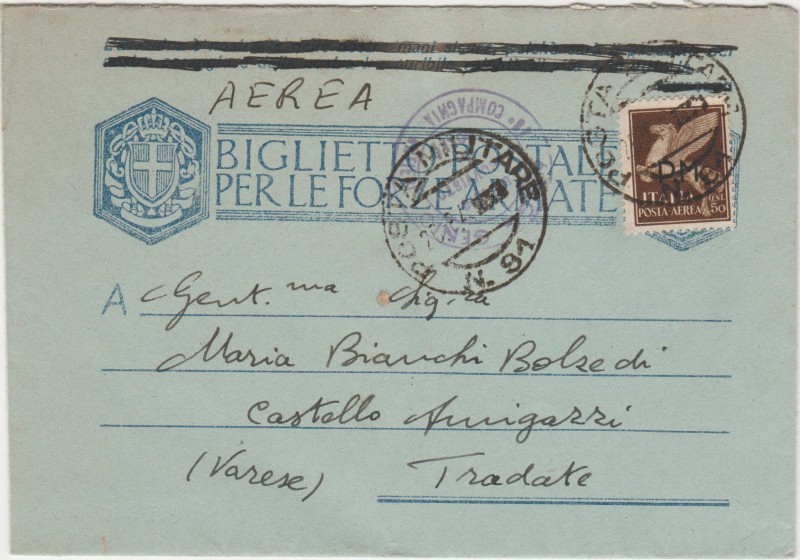 AEREA
BIGLIETTO POSTALE
PER LE FORZE ARMATE
POSTA MILITARE
N. 91
COMPAGNIA
POSTA MILITARE
N. 91
P.M.
ITALIA CENT.
POSTA AEREA 50
A Gent.ma Sig.ra
Maria Bianchi Bolzedi
Castello Amigazzi
(Varese) Tradate